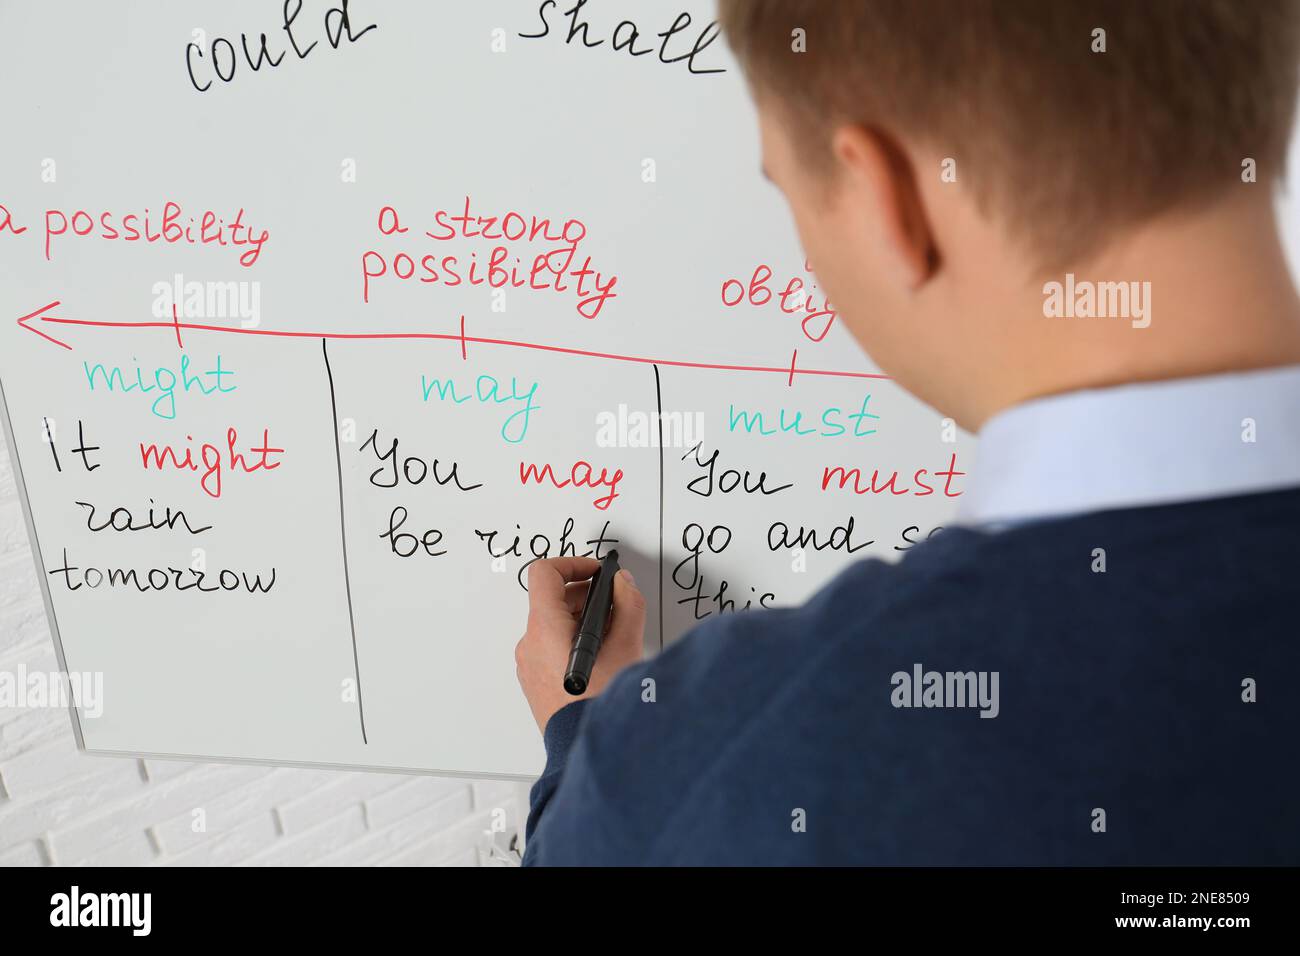 could shall
a possibility
a strong
possibility
might
may
must
It might
rain
tomorrow
You may
be right
You must
go and
this
alamy
alamy
alamy
alamy
alamy
Image ID: 2NE8509
www.alamy.com